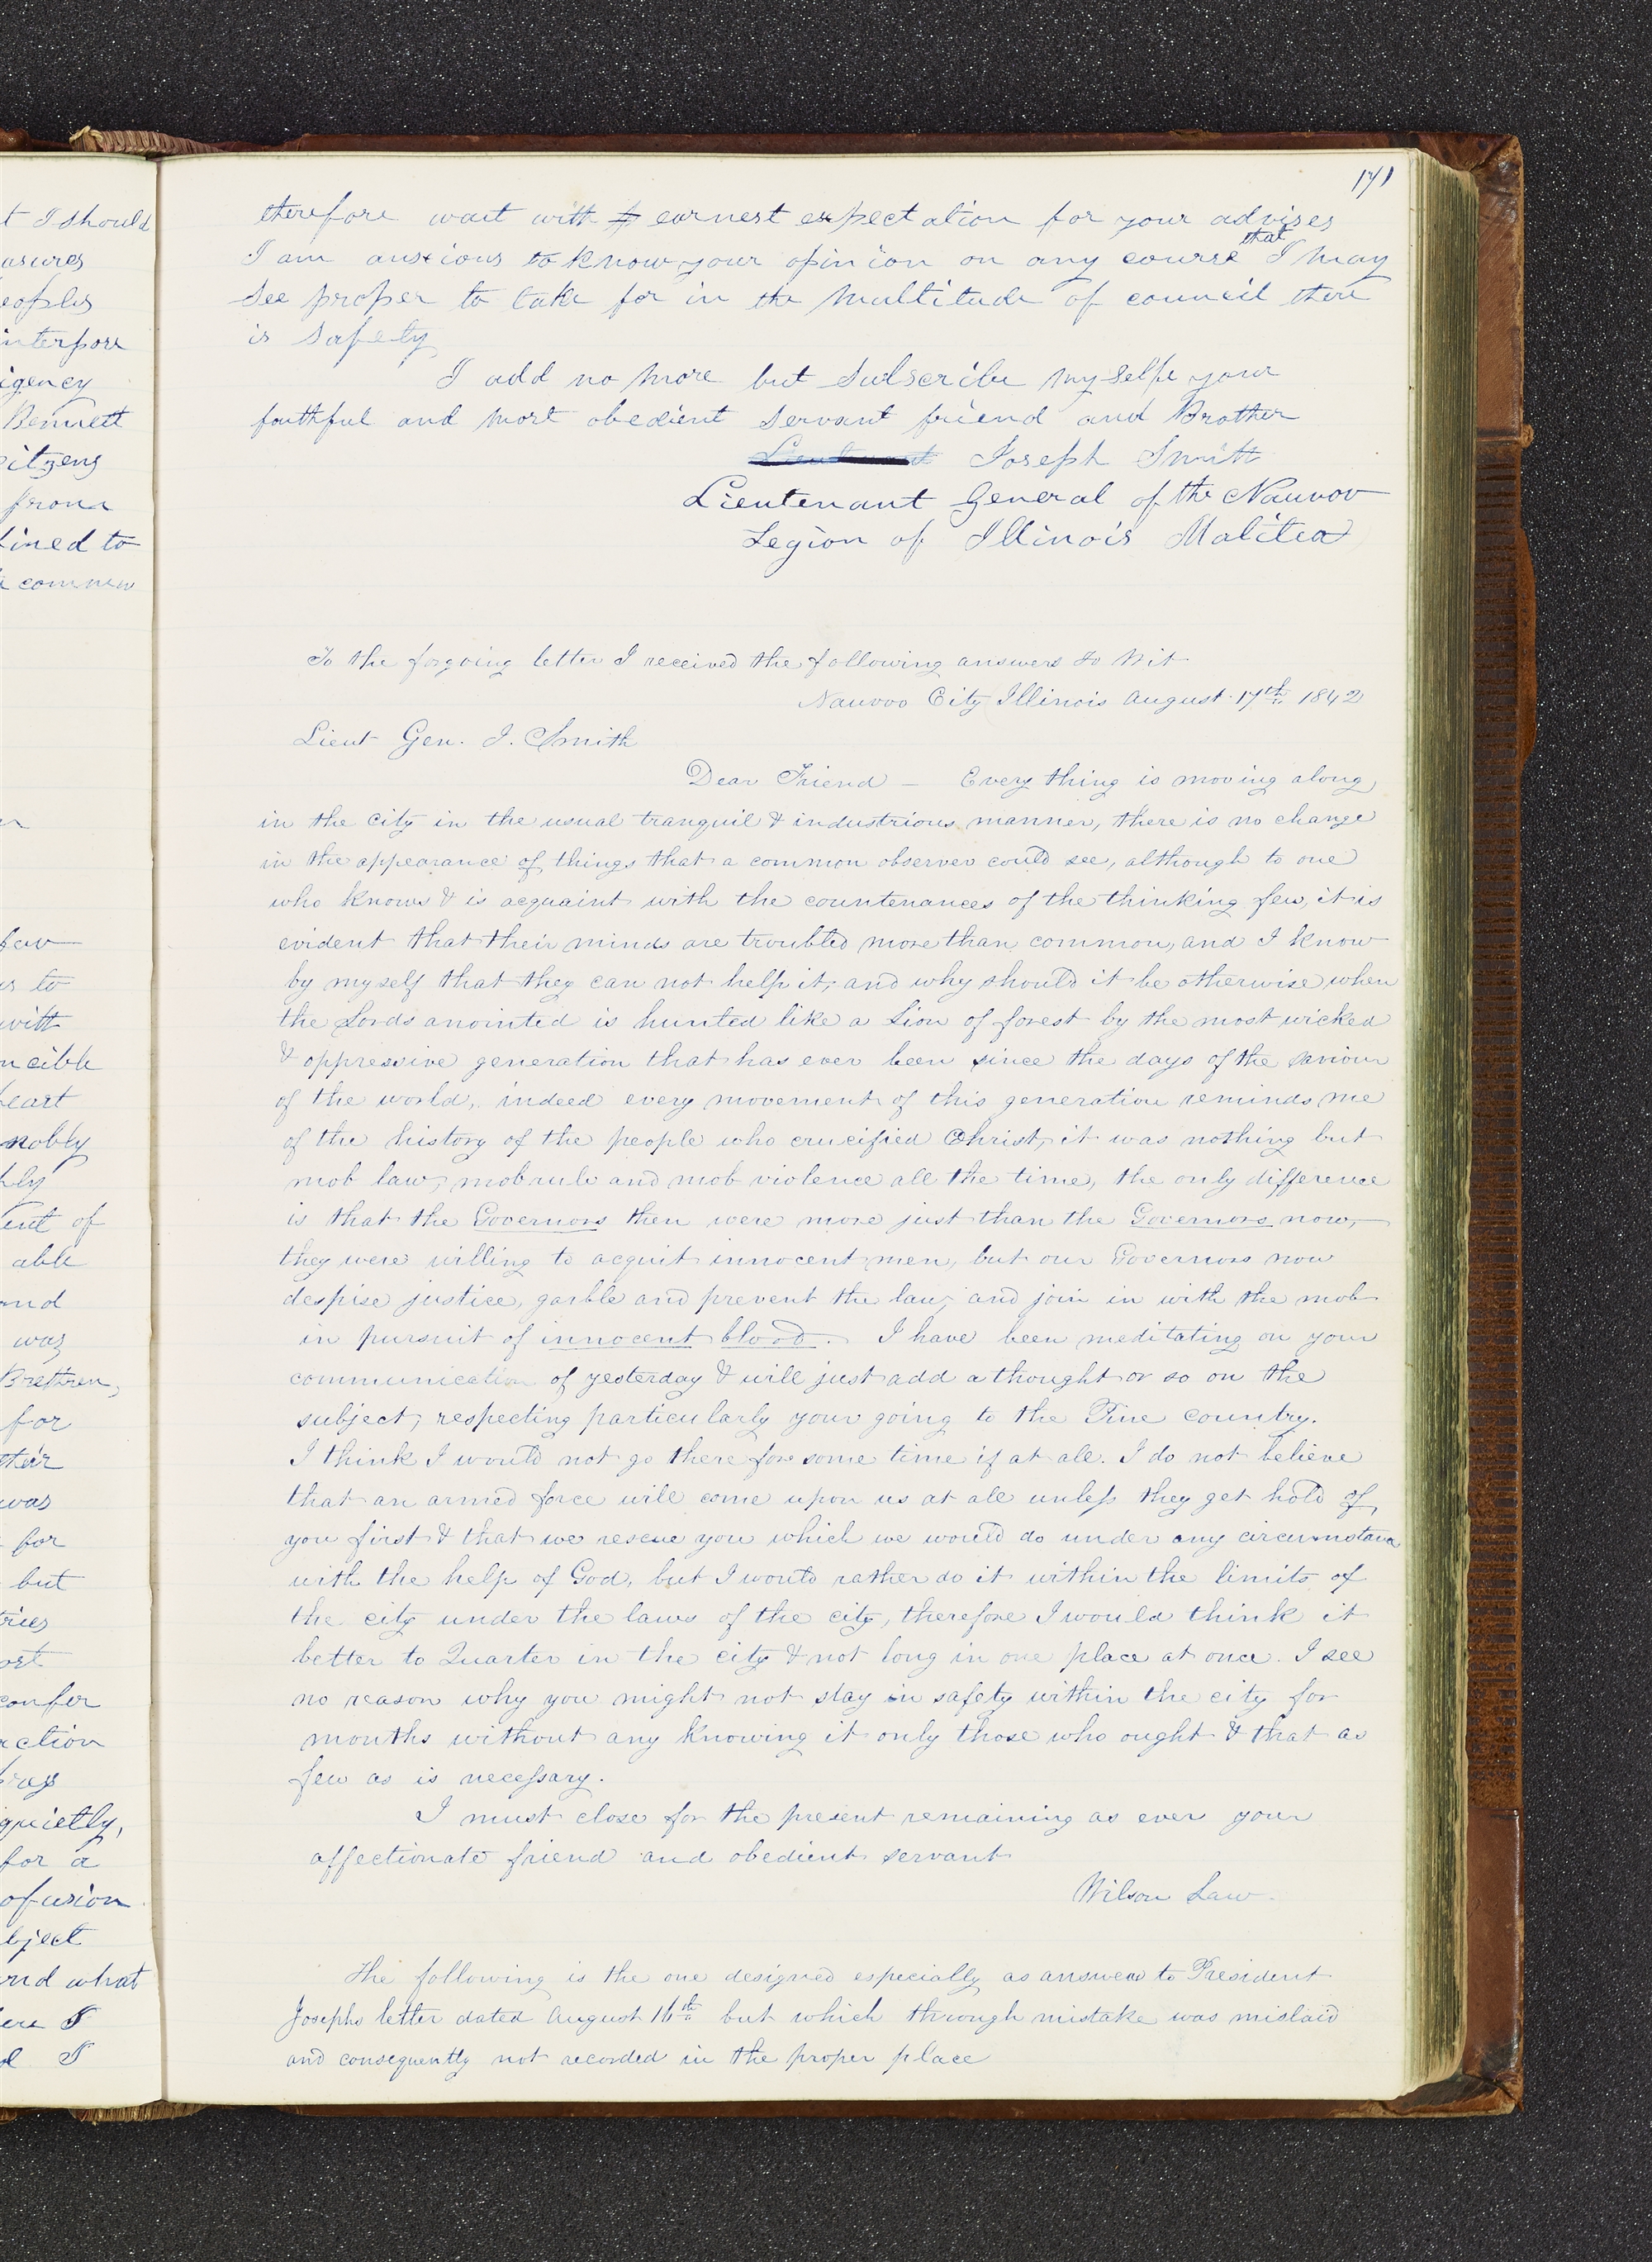 t I should
asures
eoples
interpose
igency
Bennett
citzens
from a
lined to
commen
few
us to
with
ncible
heart
nobly
hly
ent of
able
and
was
Brethren,
for
their
was
for
but
tries
ost
confer
action
quietly,
for a
ofusion
bject
and what
ere I
I
171
therefore wait with earnest expectation for your advises
I am anxious to know your opinion on any course that I may
see proper to take for in the multitude of council there
is safety
I add no more but subscribe my selfe your
faithful and most obedient servant friend and Brother
Lieutenant Joseph Smith
Lieutenant General of the Nauvoo
Legion of Illinois Malitea
To the forgoing letter I received the following answers to Wit
Nauvoo City Illinois August 17th 1842
Lieut Gen. J. Smith
Dear Friend — Every thing is moving along
in the city in the usual tranquil & industrious manner, there is no change
in the appearance of things that a common observer could see, although to one
who knows & is acquaint with the countenances of the thinking few, it is
evident that their minds are troubled more than common, and I know
by myself that they can not help it, and why should it be otherwise when
the Lords anointed is hunted like a Lion of forest by the most wicked
& oppressive generation that has ever been since the days of the Saviour
of the world, indeed every movement of this generation reminds me
of the history of the people who crucified Christ, it was nothing but
mob law, mob rule and mob violence all the time, the only difference
is that the Governors then were more just than the Governors now,
they were willing to acquit innocent men, but our Governors now
despise justice, garble and prevent the law, and join in with the mob
in pursuit of innocent blood. I have been meditating on your
communication of yesterday & will just add a thought or so on the
subject, respecting particularly your going to the Pine country.
I think I would not go there for some time if at all. I do not believe
that an armed force will come upon us at all unless they get hold of
you first & that we rescue you which we would do under any circumstance
with the help of God, but I would rather do it within the limits of
the city under the laws of the city, therefore I would think it
better to Quarter in the city & not long in one place at once. I see
no reason why you might not stay in safety within the city for
months without any knowing it only those who ought & that as
few as is necessary.
I must close for the present remaining as ever your
affectionate friend and obedient servant
Wilson Law.
The following is the one designed especially as answer to President
Josephs letter dated August 16th but which through mistake was mislaid
and consequently not recorded in the proper place